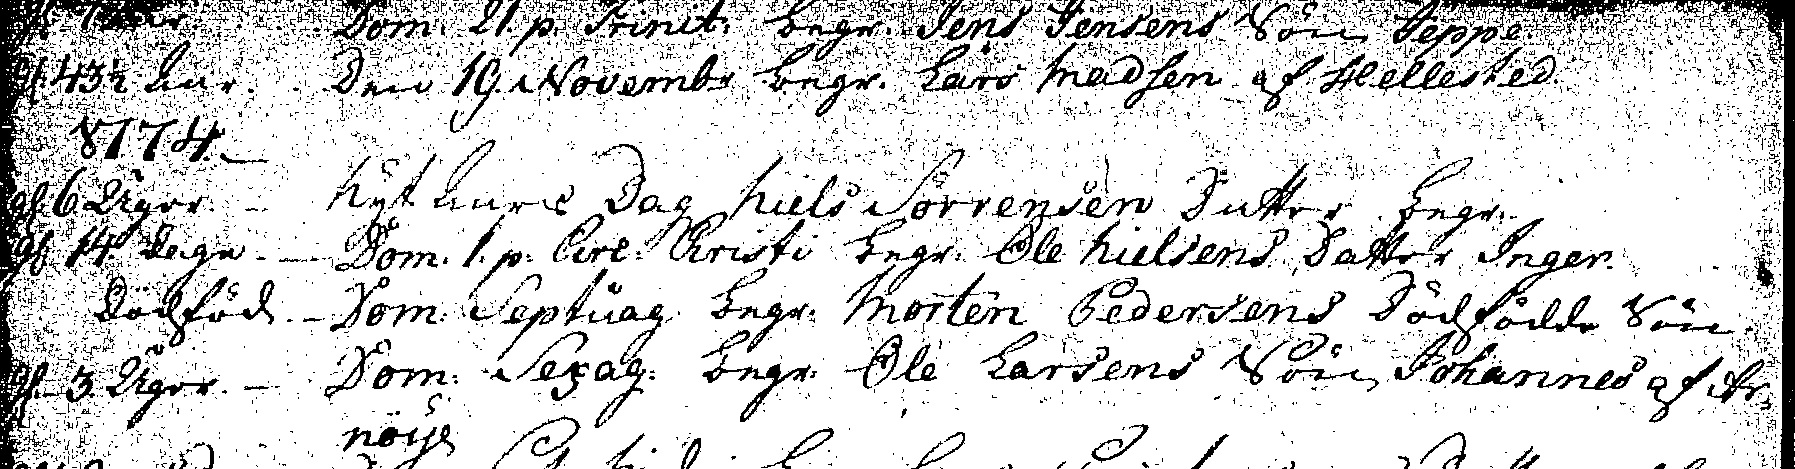 Dom. 21. p. Trinit. begr. Jens Jensens Sön Jeppe.
gl. 43½ Aar. Den 19. Novembr begr. Lars Madsen af Hellested
1774.
gl. 6 Uger. Nyt Aars Dag Niels Sörrensen Datter begr.
gl. 14 Dage. Dom. 1. p. Circ. Christi begr. Ole Nielsens Datter Inger.
Dödföd. Dom. Septuag begr. Morten Pedersens Dödfödde Sön
gl. 3 Uger. Dom. Sexag. begr. Ole Larsens Sön Johannes af Ar-
nöije